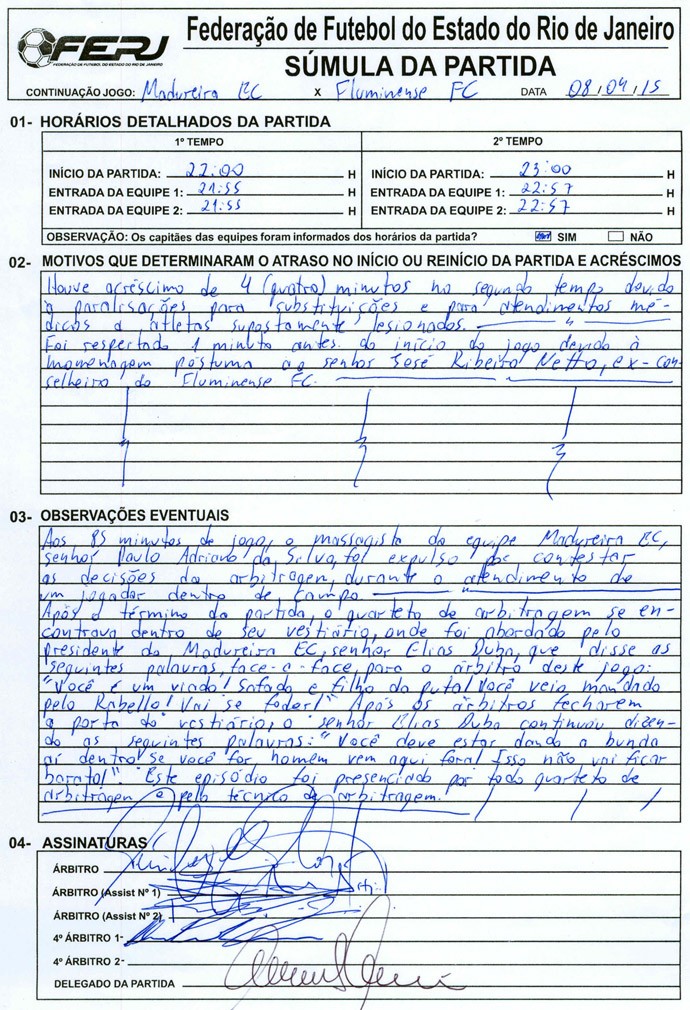 FERJ
FEDERAÇÃO DE FUTEBOL DO ESTADO DO RIO DE JANEIRO
Federação de Futebol do Estado do Rio de Janeiro
SÚMULA DA PARTIDA
CONTINUAÇÃO JOGO: Madureira EC X Fluminense FC DATA 08/04/15
01- HORÁRIOS DETALHADOS DA PARTIDA
1º TEMPO 2º TEMPO
INÍCIO DA PARTIDA: 22:00 H INÍCIO DA PARTIDA: 23:00 H
ENTRADA DA EQUIPE 1: 21:55 H ENTRADA DA EQUIPE 1: 22:57 H
ENTRADA DA EQUIPE 2: 21:55 H ENTRADA DA EQUIPE 2: 22:57 H
OBSERVAÇÃO: Os capitães das equipes foram informados dos horários da partida? SIM NÃO
02- MOTIVOS QUE DETERMINARAM O ATRASO NO INÍCIO OU REINÍCIO DA PARTIDA E ACRÉSCIMOS
Houve acréscimo de 4 (quatro) minutos no segundo tempo devido
à paralisações para substituições e para atendimentos mé-
dicos a atletas supostamente lesionados.
Foi respeitado 1 minuto antes do início do jogo devido à
homenagem póstuma ao senhor José Ribeiro Netto, ex-con-
selheiro do Fluminense FC.
03- OBSERVAÇÕES EVENTUAIS
Aos 85 minutos de jogo, o massagista da equipe Madureira EC,
senhor Paulo Adriano da Silva, foi expulso por contestar
as decisões da arbitragem, durante o atendimento de
um jogador dentro de campo.
Após o término da partida, o quarteto de arbitragem se en-
contrava dentro de seu vestiário, onde foi abordado pelo
presidente do Madureira EC, senhor Elias Duba, que disse as
seguintes palavras, face-a-face, para o árbitro deste jogo:
"Você é um viado! Safado e filho da puta! Você veio mandado
pelo Rabello! Vai se foder!" Após os árbitros fecharem
a porta do vestiário, o senhor Elias Duba continuou dizen-
do as seguintes palavras: "Você deve estar dando a bunda
aí dentro! Se você for homem vem aqui fora! Isso não vai ficar
barato!". Este episódio foi presenciado por todo quarteto de
arbitragem e pelo técnico de arbitragem.
04- ASSINATURAS
ÁRBITRO
ÁRBITRO (Assist Nº 1)
ÁRBITRO (Assist Nº 2)
4º ÁRBITRO 1-
4º ÁRBITRO 2-
DELEGADO DA PARTIDA